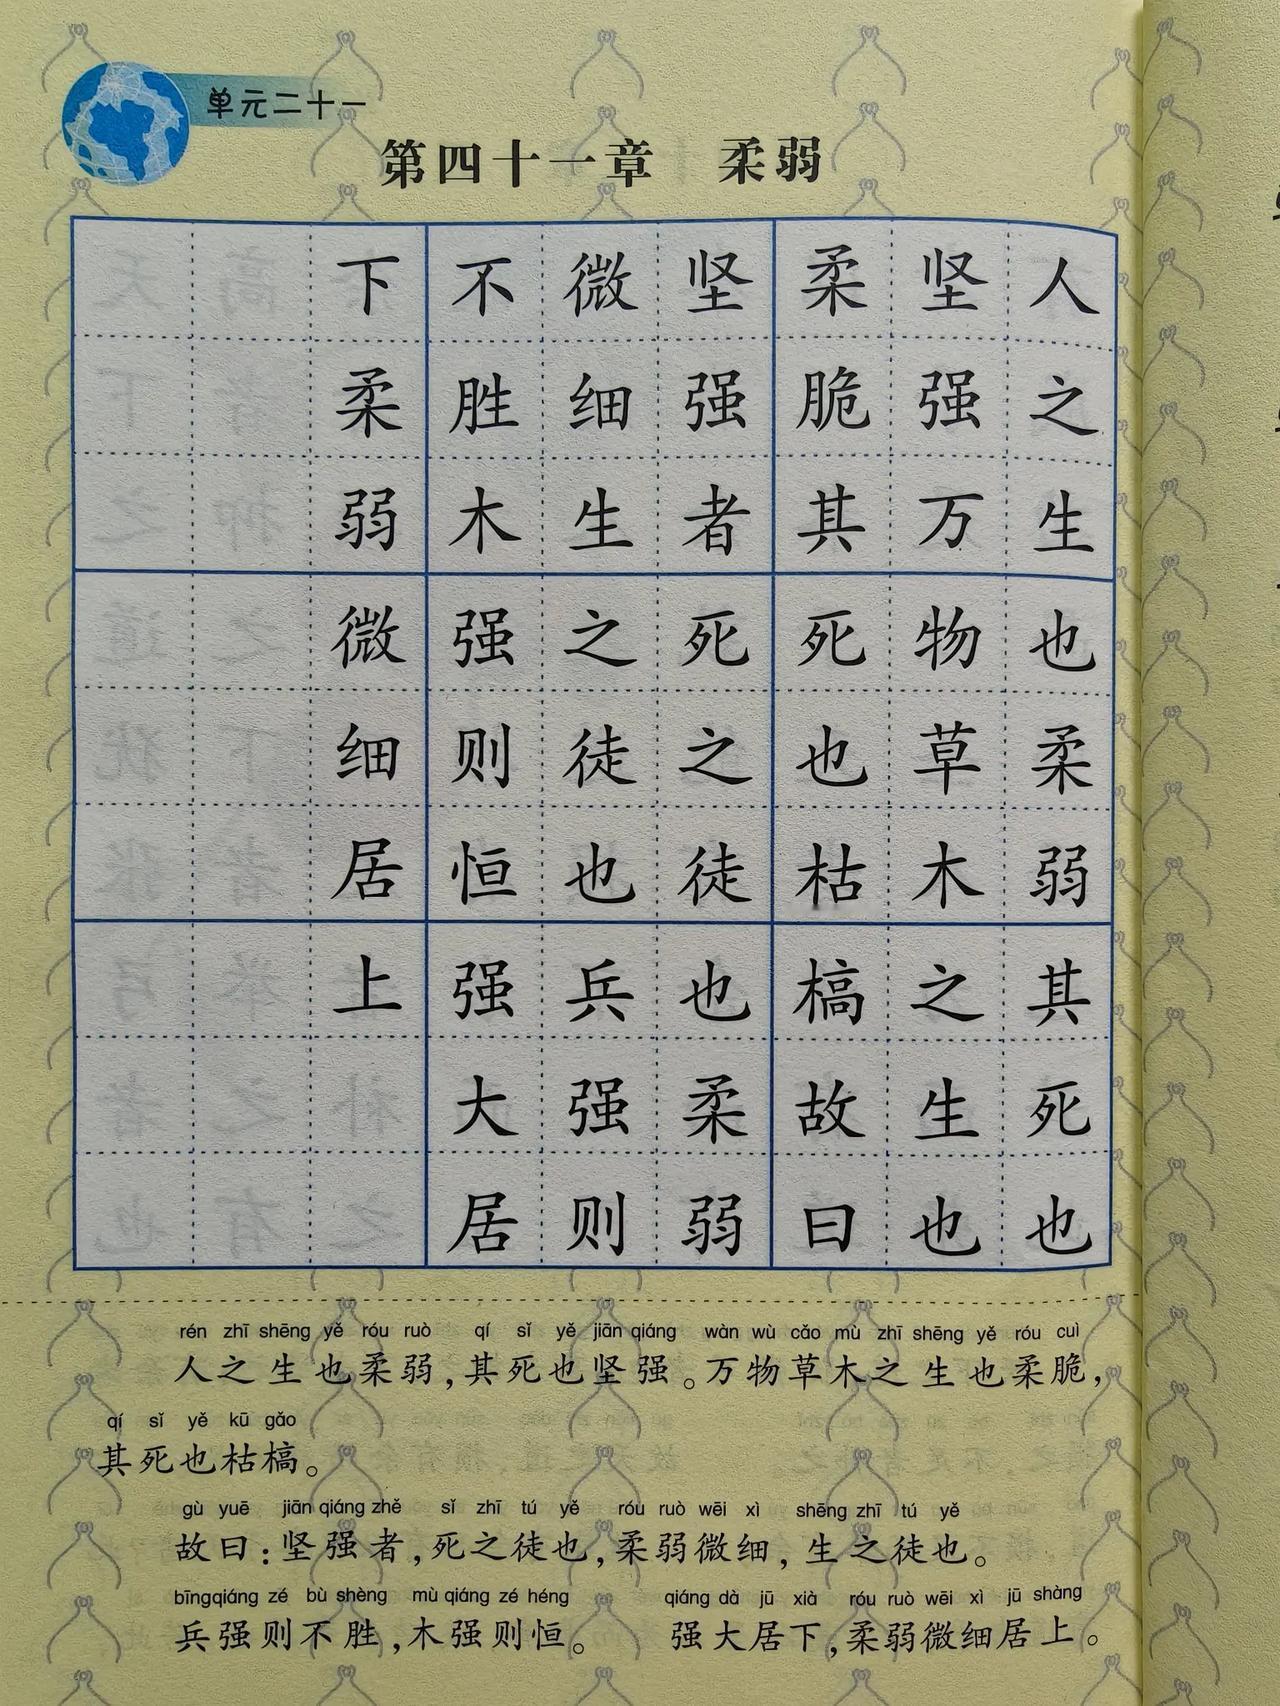 单元二十一
第四十一章 柔弱
人之生也柔弱其死也
坚强万物草木之生也
柔脆其死也枯槁故曰
坚强者死之徒也柔弱
微细生之徒也兵强则
不胜木强则恒强大居
下柔弱微细居上
rén zhī shēng yě róu ruò qí sǐ yě jiān qiáng wàn wù cǎo mù zhī shēng yě róu cuì
人之生也柔弱,其死也坚强。万物草木之生也柔脆,
qí sǐ yě kū gǎo
其死也枯槁。
gù yuē jiān qiáng zhě sǐ zhī tú yě róu ruò wēi xì shēng zhī tú yě
故曰:坚强者,死之徒也,柔弱微细,生之徒也。
bīngqiáng zé bù shèng mù qiáng zé héng qiáng dà jū xià róu ruò wēi xì jū shàng
兵强则不胜,木强则恒。 强大居下,柔弱微细居上。